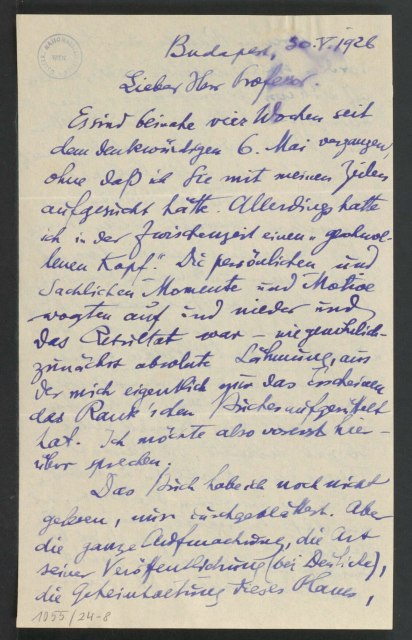 Budapest, 30.V.1926
Lieber Herr Professor.
Es sind beinahe vier Wochen seit
dem denkwürdigen 6. Mai vergangen,
ohne daß ich Sie mit meinen Zeilen
aufgesucht hätte. Allerdings hatte
ich in der Zwischenzeit einen „geschwol-
lenen Kopf“. Die persönlichen und
sachlichen Momente und Motive
wogten auf und nieder und
das Resultat war – wie gewöhnlich –
zunächst absolute Lähmung, aus
der mich eigentlich nur das Erscheinen
des Rank'schen Buches aufgerüttelt
hat. Ich möchte also vorerst hie-
rüber sprechen.
Das Buch habe ich noch nicht
gelesen, nur durchgeblättert. Aber
die ganze Aufmachung, die Art
seiner Veröffentlichung (bei Deuticke),
die Geheimhaltung dieses Planes,
1955/24-8
WIEN